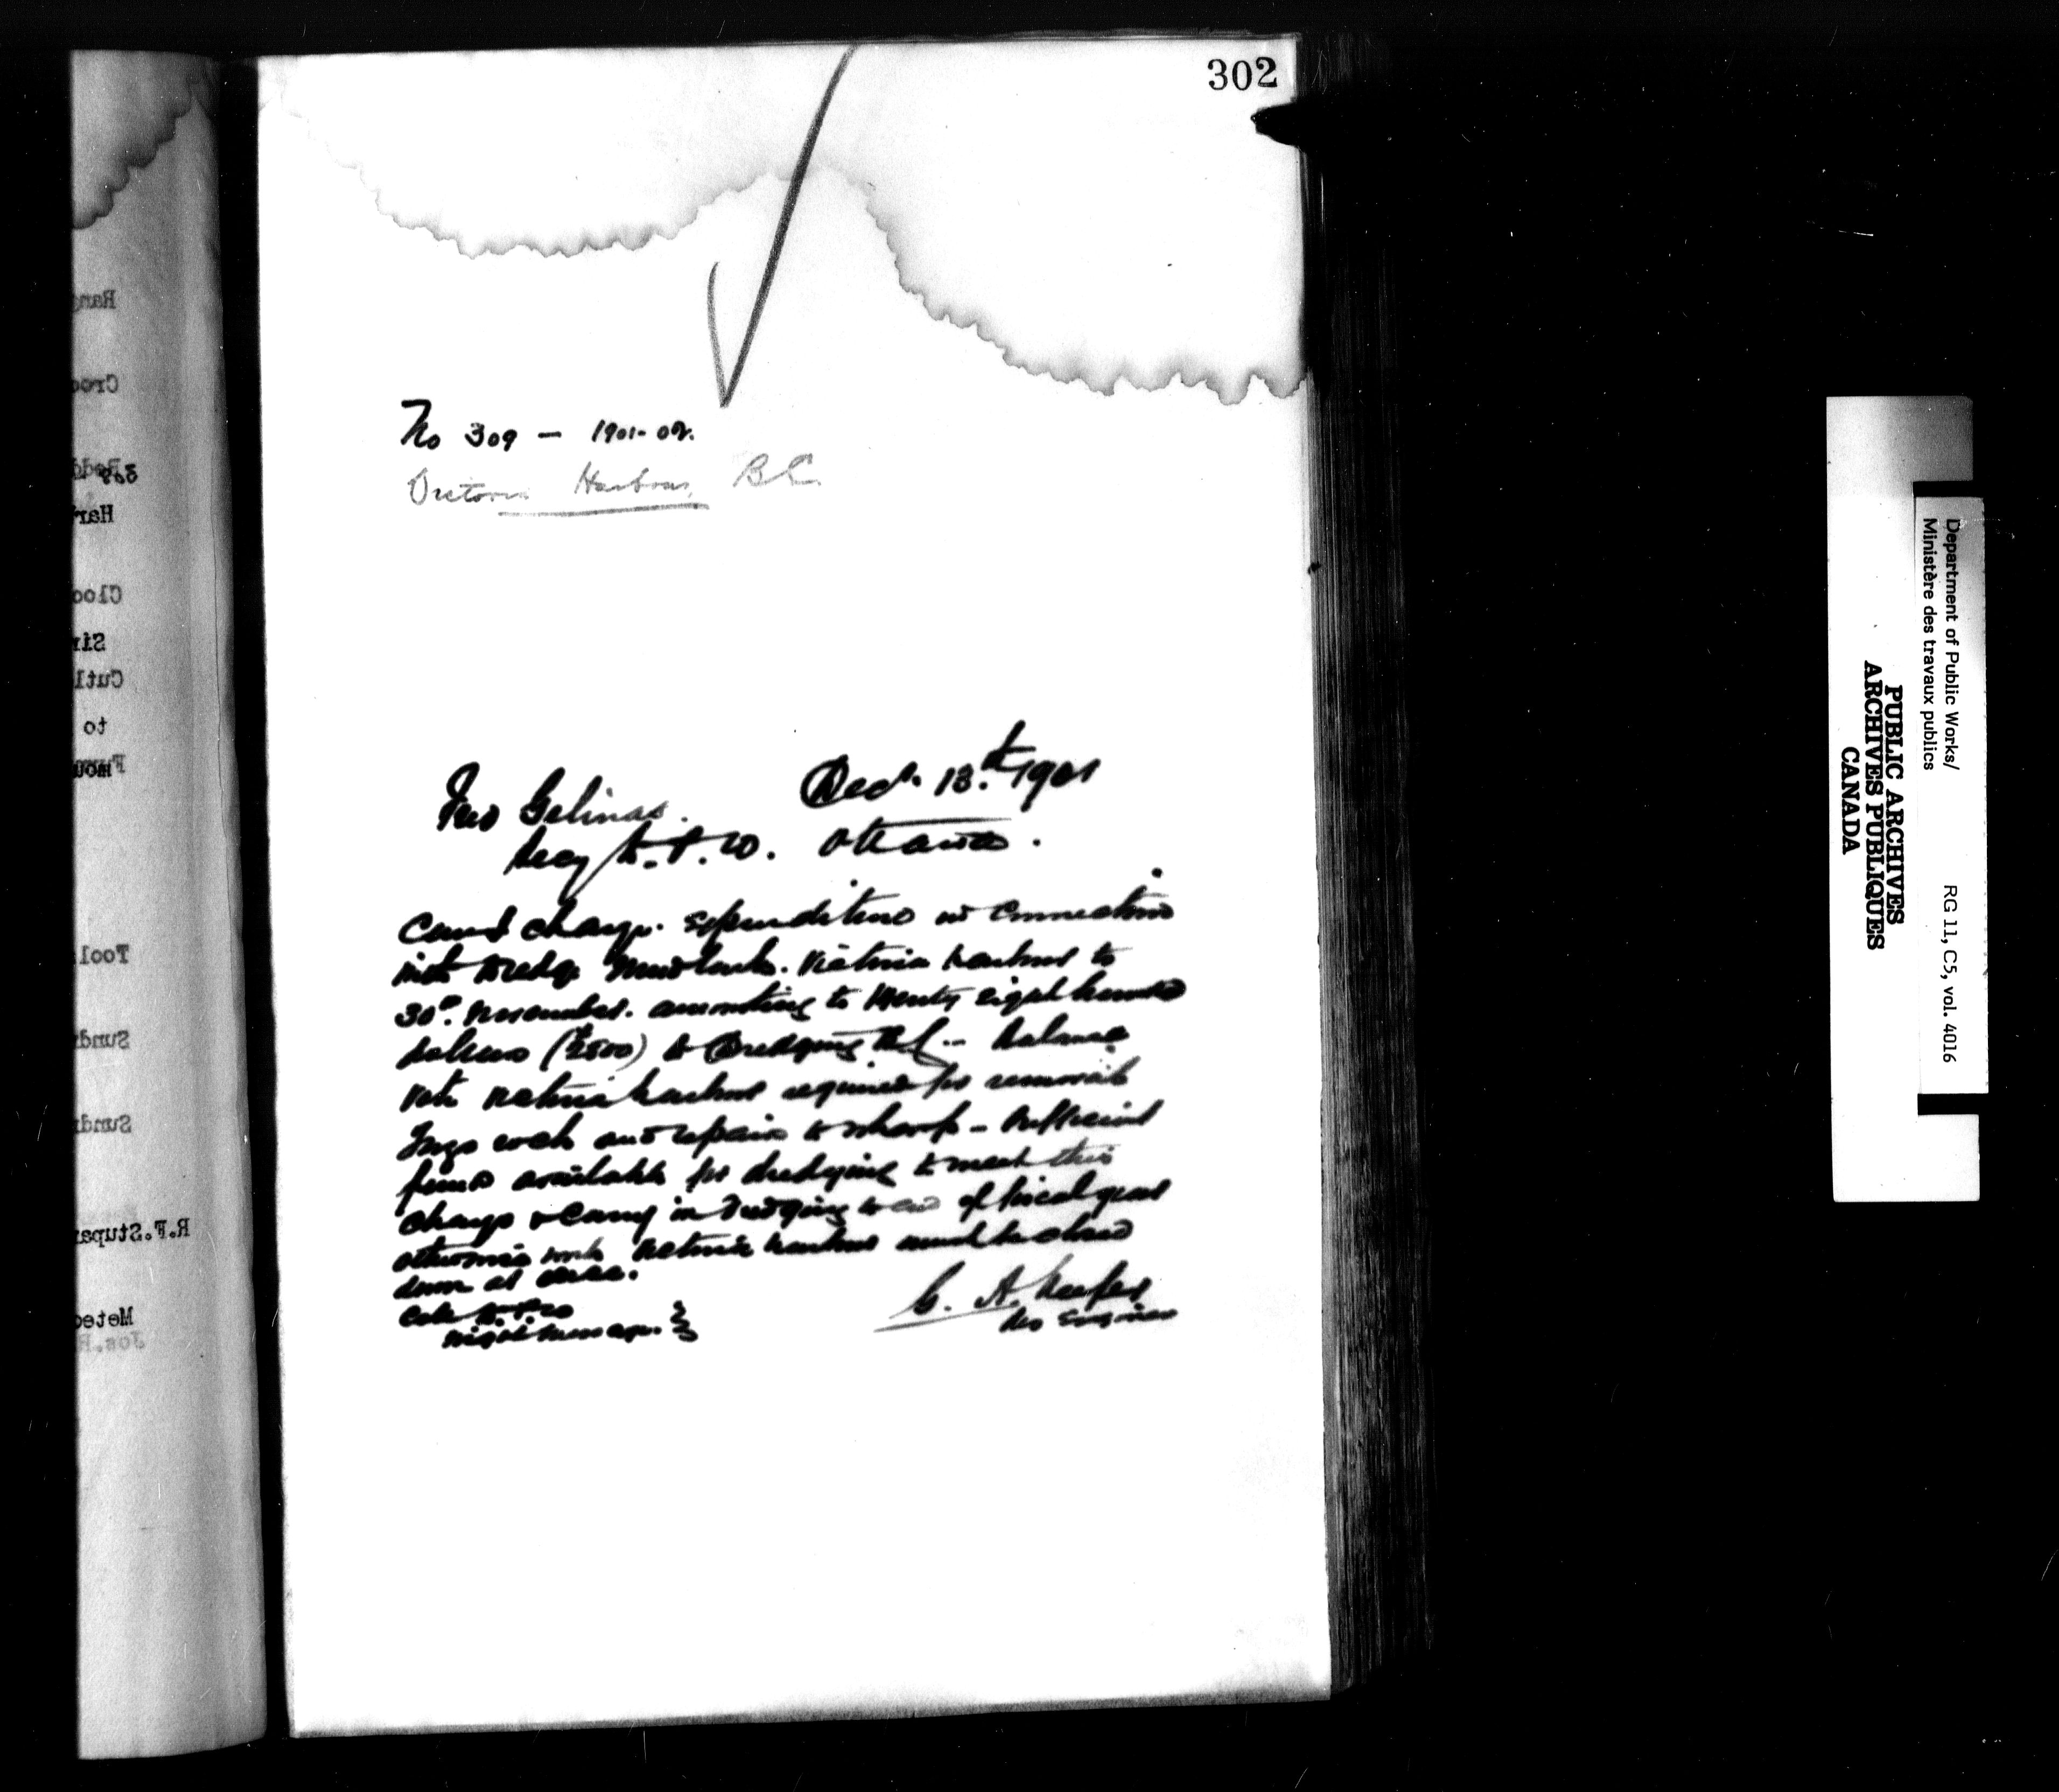 302
No 309 - 1901-02.
Victoria Harbour B.C.
Dec. 13.th 1901
Fred Gelinas.
Secy D.P.W. Ottawa.
Cannot charge expenditure in connection
with Dredge Mudlark. Victoria harbour to
30th. November. amounting to twenty eight hundred
dollars ($2800) to Dredging B.C. -- balance
vote Victoria harbour required for removal
rock and repairs to wharf - sufficient
funds available for dredging to meet this
charge & carry on dredging to end of fiscal year
otherwise work Victoria harbour must be closed
down at once.
night message.
C. A. Keefer
Res Engineer
Department of Public Works/
Ministère des travaux publics
RG 11, C5, vol. 4016
PUBLIC ARCHIVES
ARCHIVES PUBLIQUES
CANADA